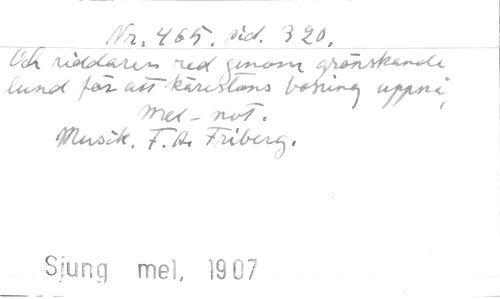 Nr. 465. sid. 320.
Och riddaren red genom grönskande
lund för att kärestans boning uppnå,
Mel-not.
Musik. F. A. Friberg.
Sjung mel, 1907